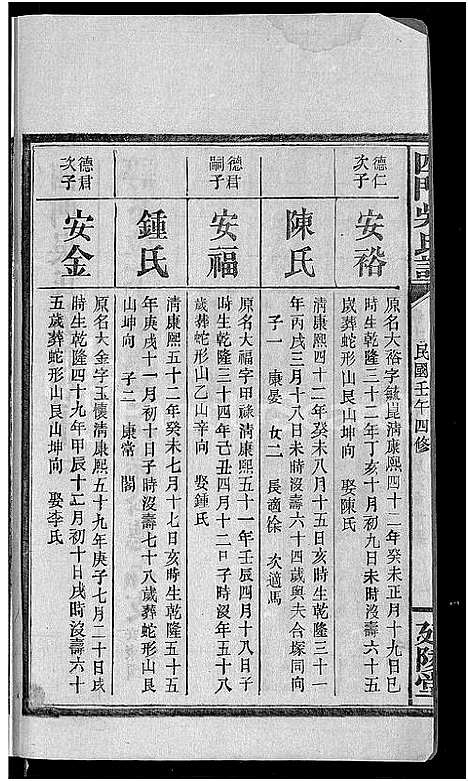 四門吳氏譜
民國壬午四修
延陵堂
德仁
次子
安裕
原名大裕字毓崑清康熙四十二年癸未正月十九日巳
時生乾隆三十二年丁亥十月初九日未時沒壽六十五
歲葬蛇形山艮山坤向 娶陳氏
陳氏
清康熙四十二年癸未八月十五日亥時生乾隆三十一
年丙戌三月十八日未時沒壽六十四歲與夫合塚同向
子一 康晏 女二 長適徐 次適馮
德君
嗣子
安福
原名大福字甲祿清康熙五十一年壬辰四月十八日子
時生乾隆三十四年己丑四月十二日子時沒年五十八
歲葬蛇形山乙山辛向 娶鍾氏
鍾氏
清康熙五十二年癸未七月十七日亥時生乾隆五十五
年庚戌十一月初十日子時沒壽七十八歲葬蛇形山艮
山坤向 子二 康常 閣
德君
次子
安金
原名大金字玉懷清康熙五十九年庚子七月二十日戌
時生乾隆四十九年甲辰十二月初十日戌時沒壽六十
五歲葬蛇形山艮山坤向 娶李氏